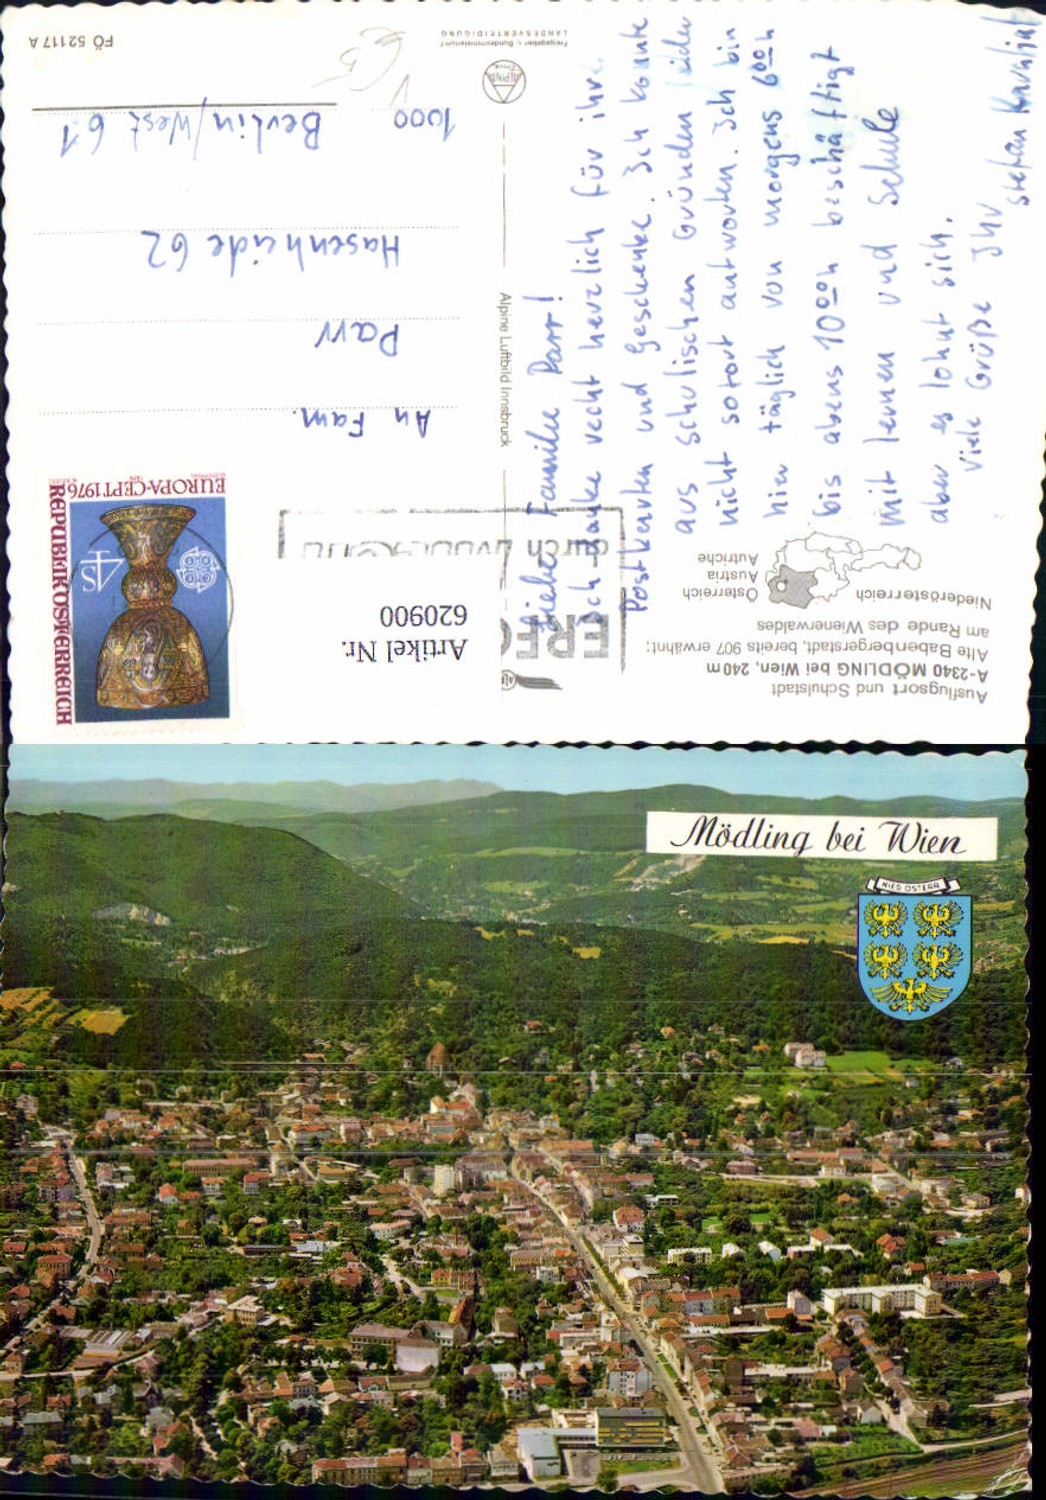 Ausflugsort und Schulstadt
A-2340 MÖDLING bei Wien, 240 m
Alte Babenbergerstadt, bereits 907 erwähnt;
am Rande des Wienerwaldes
Niederösterreich
Österreich
Austria
Autriche
Liebe Familie Parr!
Ich danke recht herzlich für ihre
Postkarten und Geschenke. Ich konnte
aus schulischen Gründen leider
nicht sofort antworten. Ich bin
hier täglich von morgens 6ººh
bis abens 10ººh beschäftigt
mit lernen und Schule
aber es lohnt sich.
Viele Grüße Ihr
Stefan
Alpine Luftbild Innsbruck
ALPINE
Freigegeben v. Bundesministerium f.
LANDESVERTEIDIGUNG
FÖ 52117 A
Artikel Nr.
620900
durch
REPUBLIK ÖSTERREICH
EUROPA-CEPT 1976
S4
An Fam.
Parr
Hasenheide 62
1000 Berlin/West 61
Mödling bei Wien
NIED. ÖSTERR.